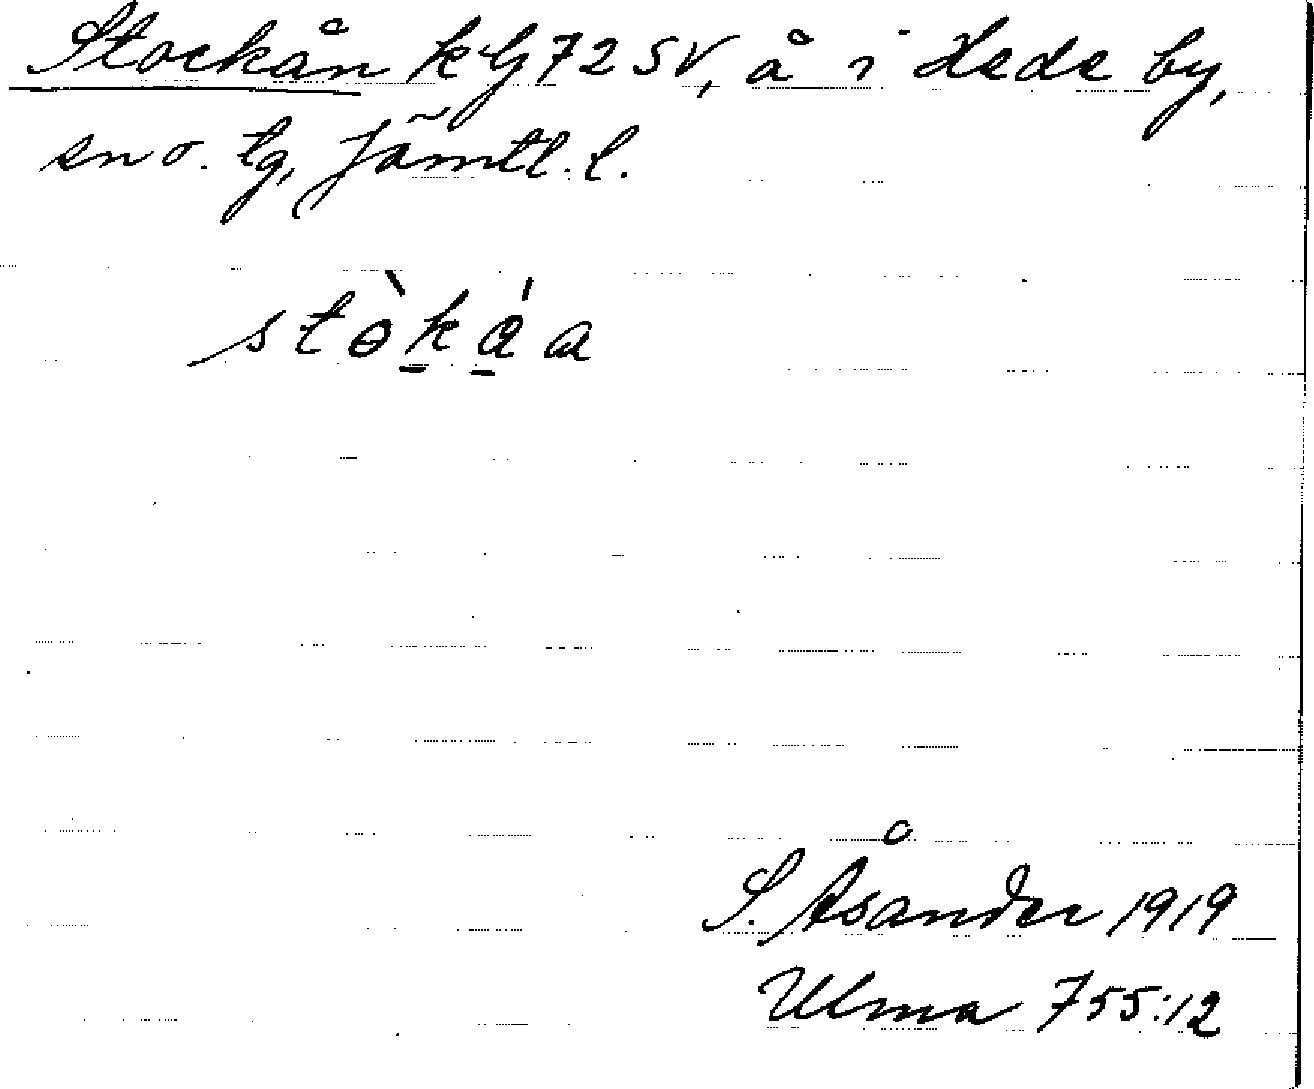 Stockån kG72SV, å i Hede by,
sn o. tg, Jämtl. l.
stòkáa
S. Åsander 1919
Ulma 755:12